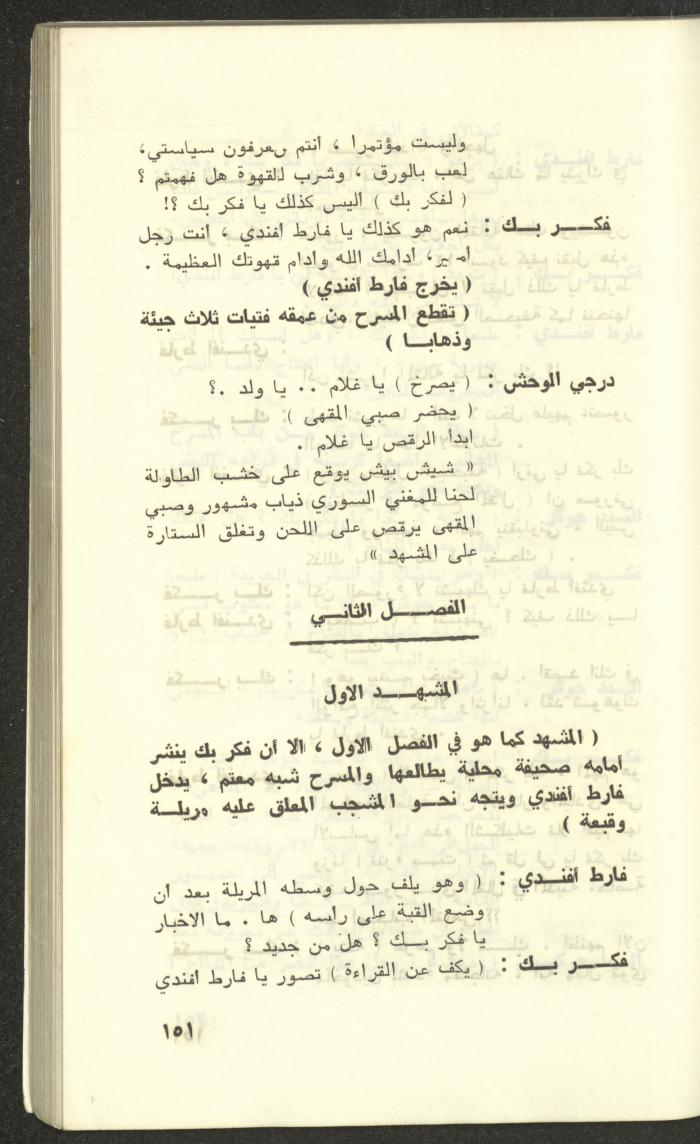 وليست مؤتمرا ، أنتم تعرفون سياستي،
لعب بالورق ، وشرب للقهوة هل فهمتم ؟
( لفكر بك ) أليس كذلك يا فكر بك ؟!
فكـــر بــك : نعم هو كذلك يا فارط أفندي ، أنت رجل
أمير، أدامك الله وأدام قهوتك العظيمة .
( يخرج فارط أفندي )
( تقطع المسرح من عمقه فتيات ثلاث جيئة
وذهابـا )
درجي الوحش : ( يصرخ ) يا غلام .. يا ولد .؟
( يحضر صبي المقهى ) :
ابدأ الرقص يا غلام .
« شيش بيش يوقع على خشب الطاولة
لحنا للمغني السوري ذياب مشهور وصبي
المقهى يرقص على اللحن وتغلق الستارة
على المشهد »
الفصـــل الثانـي
المشهـــد الاول
( المشهد كما هو في الفصل الاول ، الا أن فكر بك ينشر
أمامه صحيفة محلية يطالعها والمسرح شبه معتم ، يدخل
فارط أفندي ويتجه نحـــو المشجب المعلق عليه مريلـــة
وقبعة )
فارط أفنــدي : ( وهو يلف حول وسطه المريلة بعد ان
وضع القبة على رأسه ) ها . ما الاخبار
يا فكر بــك ؟ هل من جديد ؟
فكـــر بــك : ( يكف عن القراءة ) تصور يا فارط افندي
١٥١